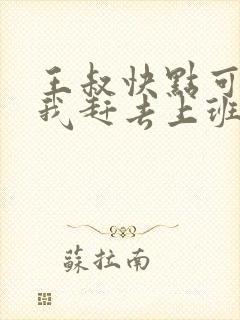 王叔快點可
我赶去上班
蘇拉南